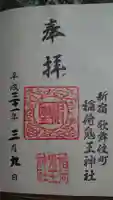 新宿 歌舞伎町
稲荷鬼王神社
奉拝
平成二十一年三月九日